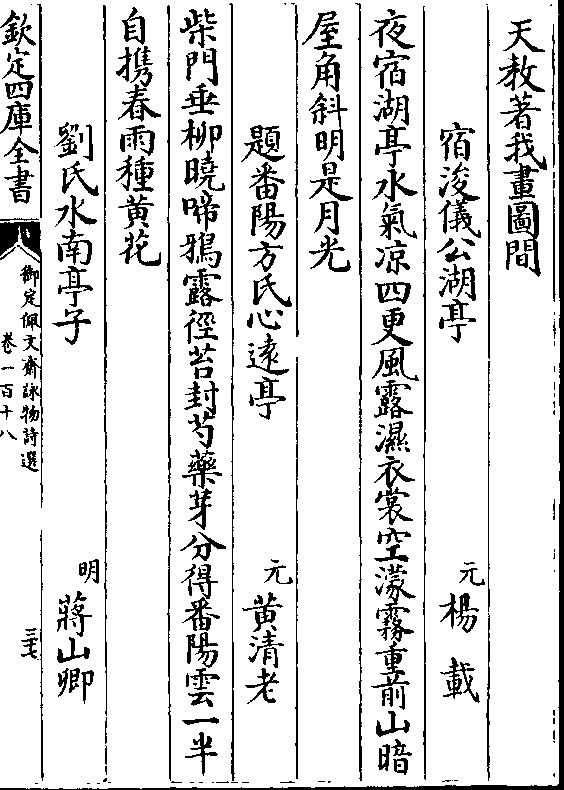 天教著我畫圖間
宿浚儀公湖亭　元 楊載
夜宿湖亭水氣凉四更風露濕衣裳空濛霧重前山暗
屋角斜明是月光
題番陽方氏心遠亭　元 黄清老
柴門垂柳曉啼鴉露徑苔封芍藥芽分得番陽雲一半
自携春雨種黄花
劉氏水南亭子　明 蔣山卿
欽定四庫全書
御定佩文齋詠物詩選
卷一百十八
三七